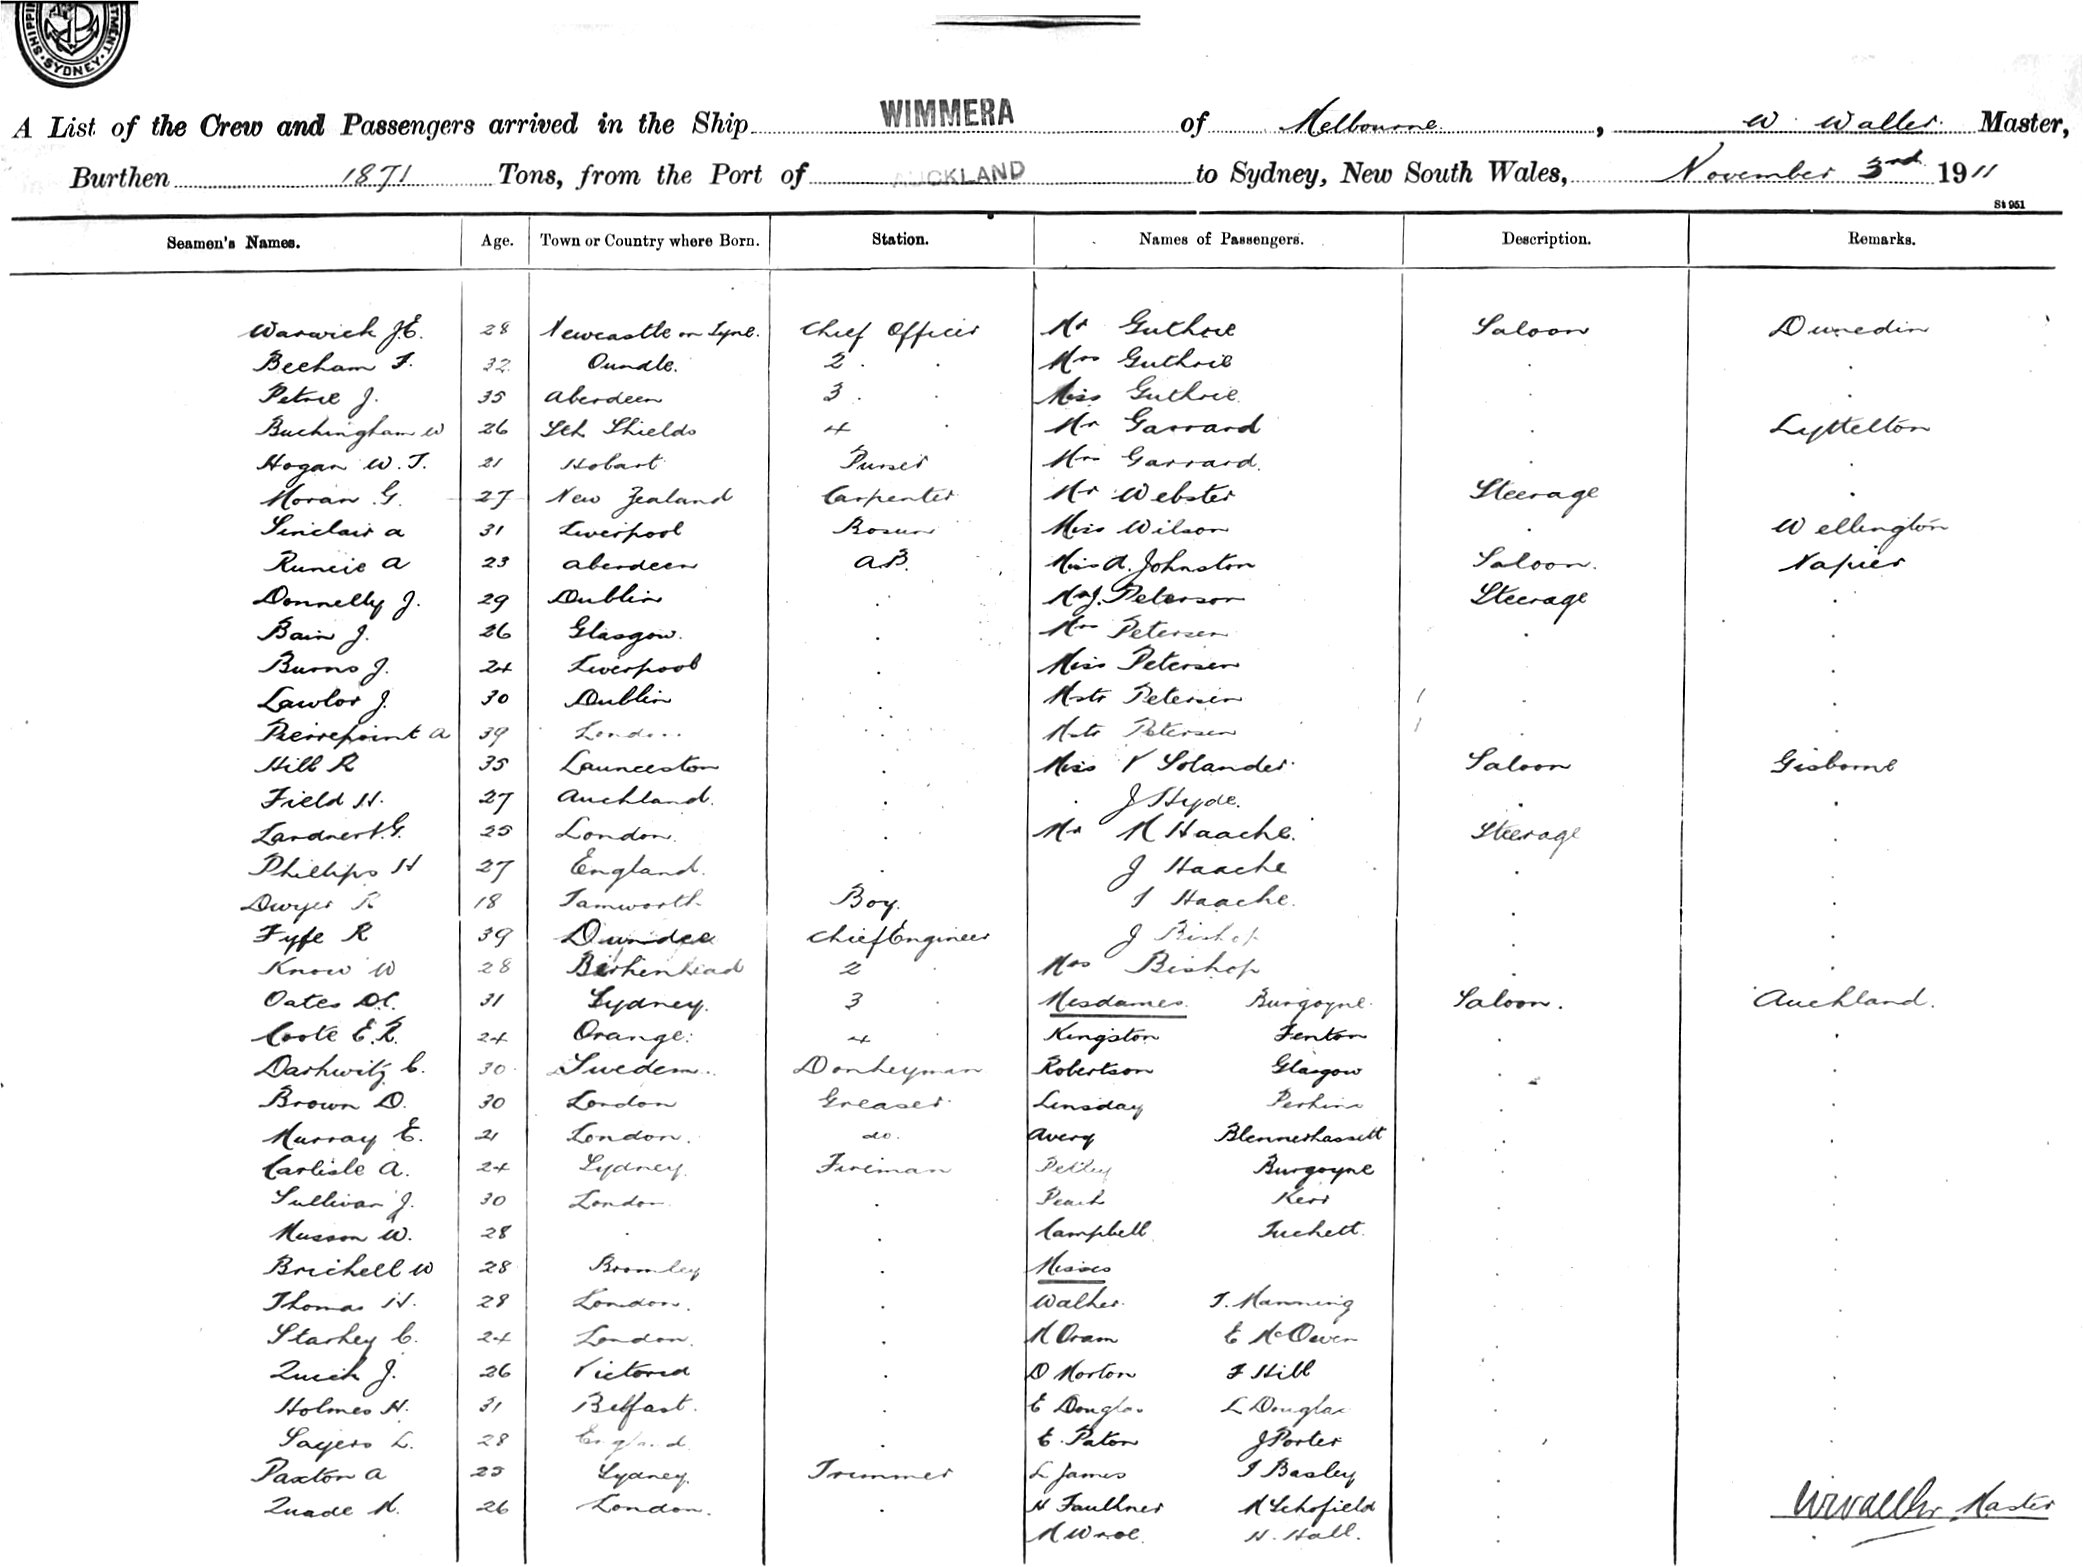 SHIPPING DEPARTMENT SYDNEY
A List of the Crew and Passengers arrived in the Ship WIMMERA of Melbourne, W. Waller Master,
Burthen 1871 Tons, from the Port of AUCKLAND to Sydney, New South Wales, November 3rd 1911
St 951
Seamen's Names. Age. Town or Country where Born. Station. Names of Passengers. Description. Remarks.
Warwick J.E. 28 Newcastle on Tyne. Chief Officer Mr Guthrie Saloon Dunedin
Beeham F. 32 Oundle. 2 . . Mrs Guthrie . .
Petrie J. 35 Aberdeen 3 . . Miss Guthrie . .
Buckingham W 26 Sth Shields 4 . Mr Garrard . Lyttelton
Hogan W. T. 21 Hobart Purser Mrs Garrard. . .
Moran G. 27 New Zealand Carpenter Mr Webster Steerage .
Sinclair A 31 Liverpool Bosun Miss Wilson . Wellington
Runcie A 23 Aberdeen A.B. Miss A. Johnston Saloon. Napier
Donnelly J. 29 Dublin . Mr J. Peterson Steerage .
Bain J. 26 Glasgow. . Mrs Petersen . .
Burns J. 24 Liverpool . Miss Petersen . .
Lawlor J. 30 Dublin . Mstr Petersen / . .
Pierrepoint A 39 London . Mstr Petersen / . .
Hill R 35 Launceston . Miss V Solander Saloon Gisborne
Field H. 27 Auckland. . . J Hyde. . .
Lardner G. 25 London. . Mr M Haache. Steerage .
Phillips H 27 England. . J Haache . .
Dwyer R 18 Tamworth Boy. Haache. . .
Fyfe R 39 Dundee Chief Engineer J Bishop . .
Know W 28 Birkenhead 2 . Mrs Bishop . .
Oates D.C. 31 Sydney. 3 . Mesdames. Burgoyne Saloon. Auckland.
Coote E.R. 24 Orange. 4 . Kingston Fenton . .
Dashwitz C. 30 Sweden. Donkeyman Robertson Glasgow . .
Brown D. 30 London Greaser Linsday Perkins . .
Murray E. 21 London. do. Avery Blennerhassett . .
Carlisle A. 24 Sydney. Fireman Petley Burgoyne . .
Sullivan J. 30 London. . Peach Kerr . .
Musson W. 28 . . Campbell Tuckett. . .
Brickell W 28 Bromley . Misses . .
Thomas H. 28 London. . Walker. T. Manning . .
Starkey C. 24 London. . M Oram E McOwen . .
Quick J. 26 Victoria . D Morton F Hill . .
Holmes H. 31 Belfast. . E Douglas L Douglas . .
Sayers L. 28 England . E. Paton J Porter . .
Paxton A 25 Sydney. Trimmer L James I Basley . .
Quade M. 26 London. . H Faulkner M Schofield . W Waller Master
M Wroe. H. Hall. . .